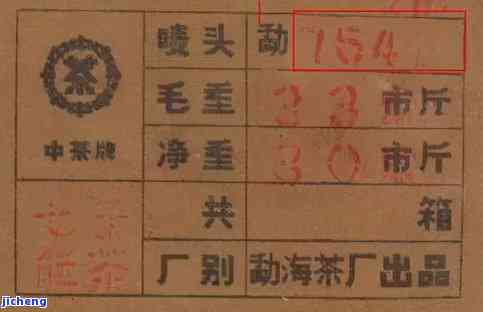 唛头 勐 154
毛重 33 市斤
中茶牌
净重 30 市斤
共 箱
厂别 勐海茶厂出品
jicheng